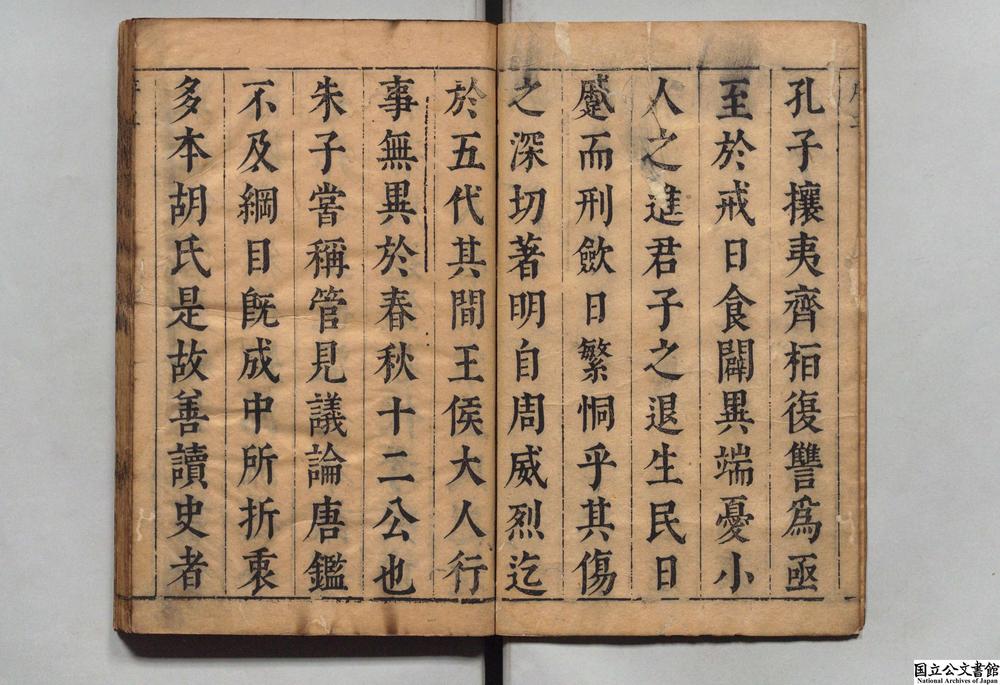 孔子攘夷齊桓復讐為亟
至於戒日食闢異端憂小
人之進君子之退生民日
蹙而刑歛日繁恫乎其傷
之深切著明自周威烈迄
於五代其間王侯大人行
事無異於春秋十二公也
朱子嘗稱管見議論唐鑑
不及綱目旣成中所折衷
多本胡氏是故善讀史者
国立公文書館
National Archives of Japan